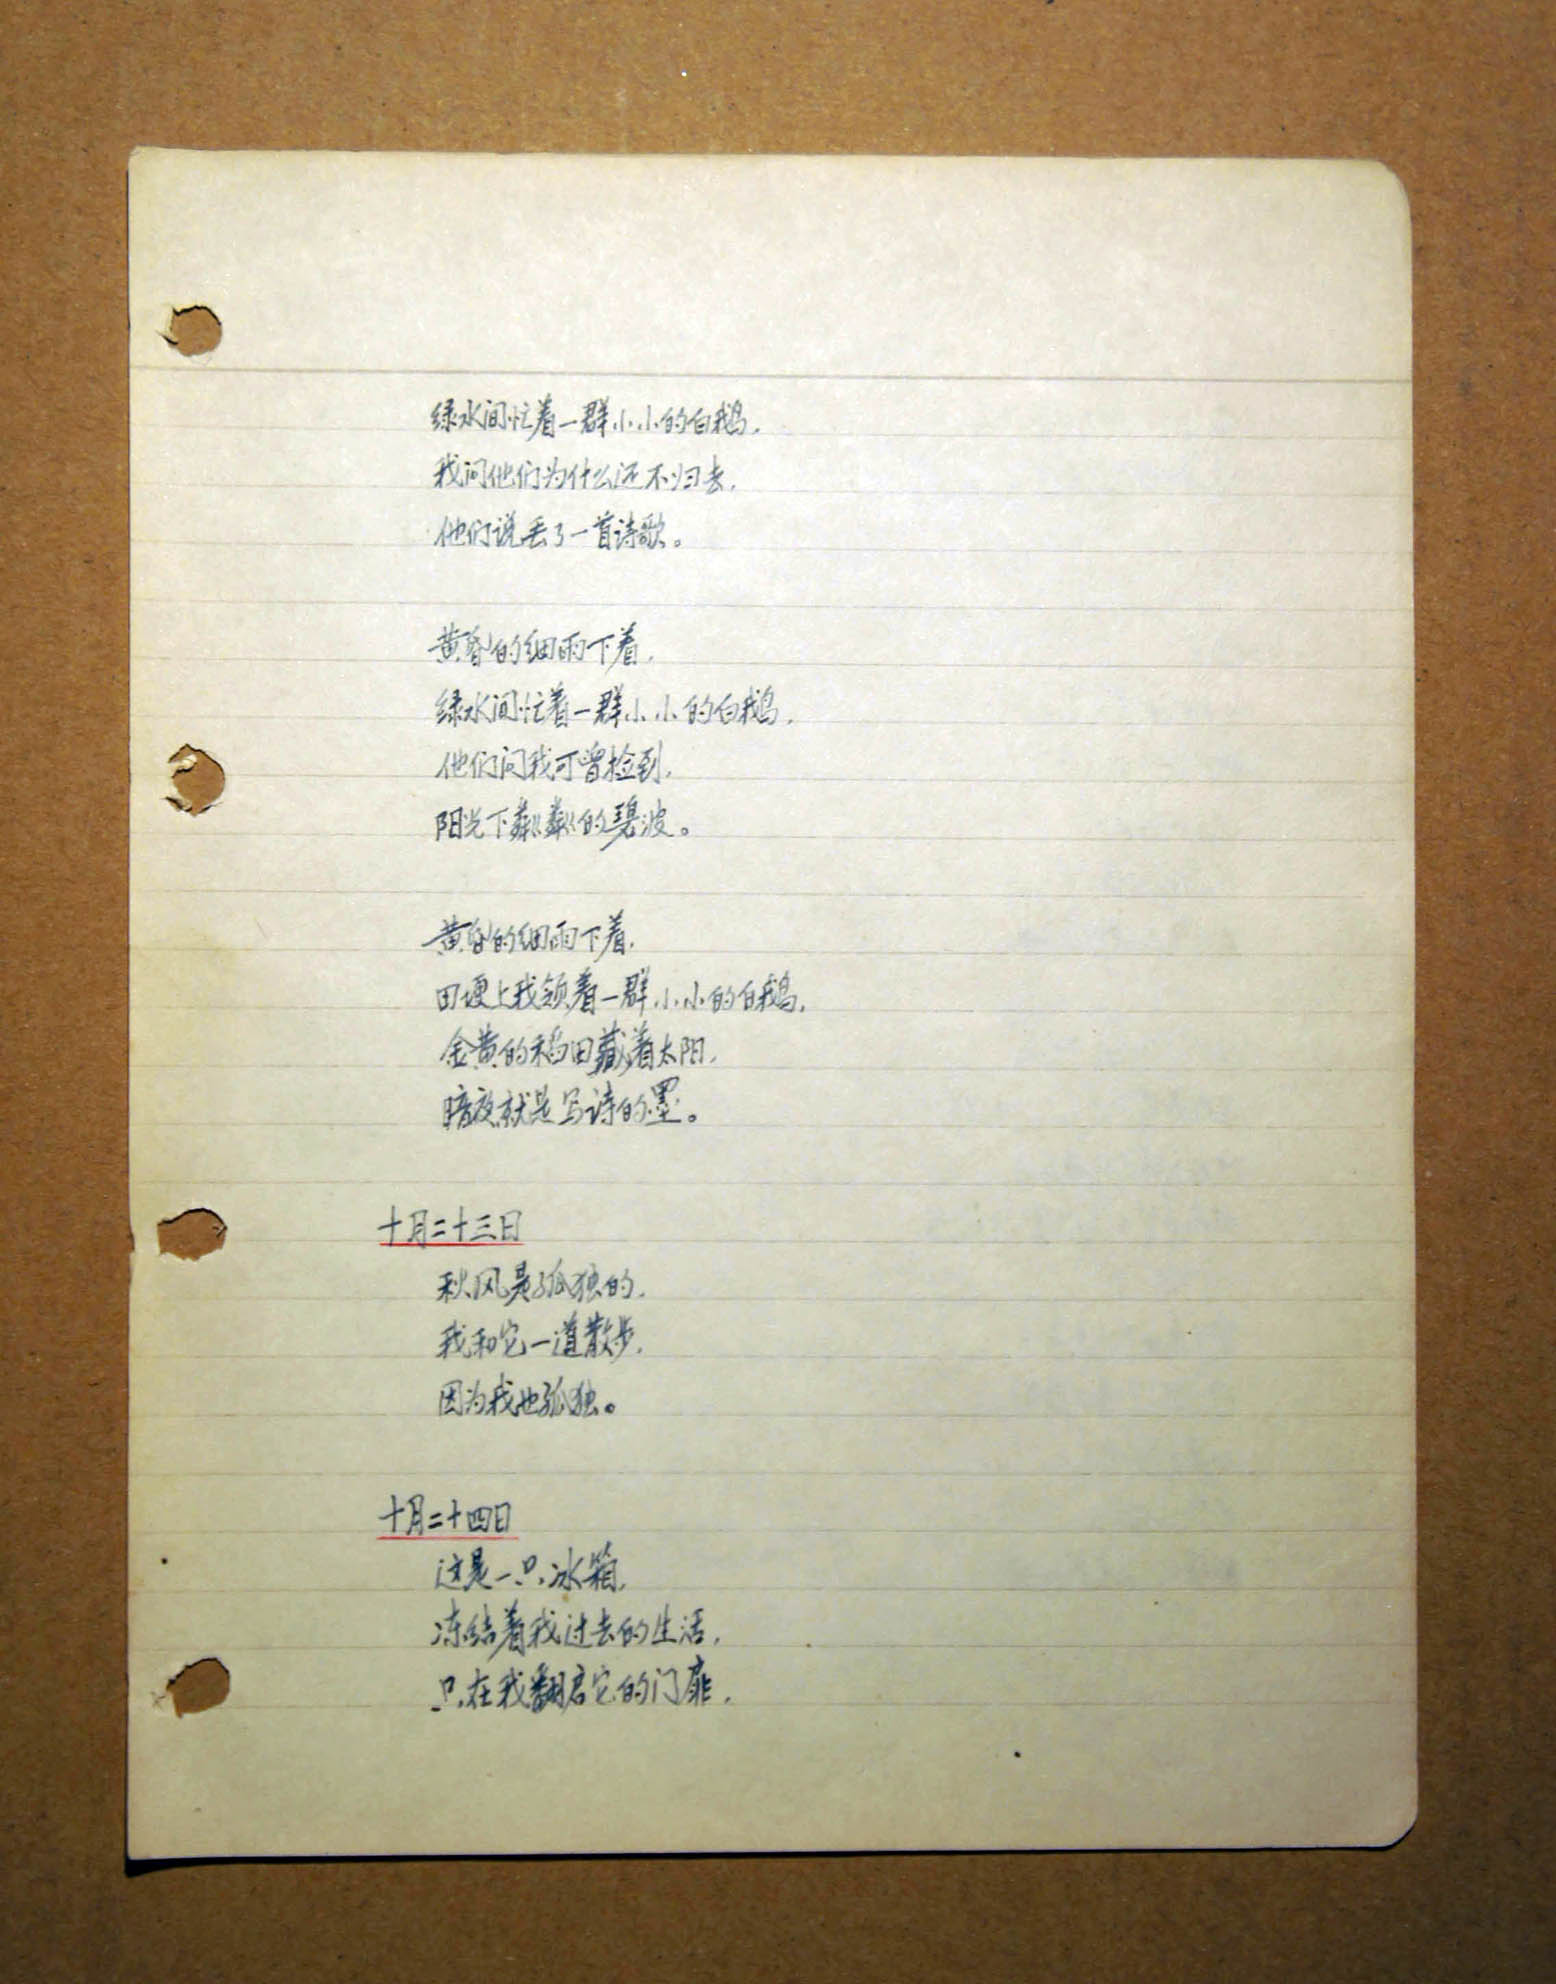 绿水间忙着一群小小的白鹅，
我问他们为什么还不归去，
他们说丢了一首诗歌。
黄昏的细雨下着，
绿水间忙着一群小小的白鹅，
他们问我可曾捡到，
阳光下粼粼的碧波。
黄昏的细雨下着，
田埂上我领着一群小小的白鹅，
金黄的稻田藏着太阳，
暗夜就是写诗的墨。
十月二十三日
秋风是孤独的，
我和它一道散步，
因为我也孤独。
十月二十四日
这是一只冰箱，
冻结着我过去的生活，
只在我翻启它的门扉，